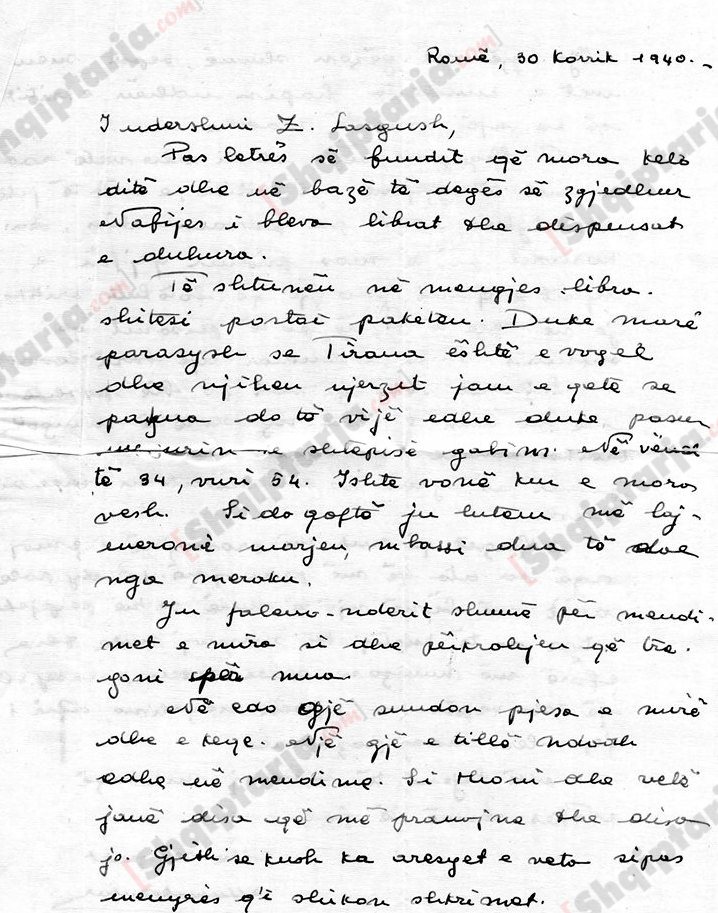 Romë, 30 Korrik 1940.-
I ndershmi Z. Lasgush,
Pas letrës së fundit që mora këto
ditë dhe në bazë të degës së zgjedhur
Nafijes i bleva librat dhe dispensat
e duhura.
Të shtunën në mengjes libra-
shitesi postai paketën. Duke marë
parasysh se Tirana është e vogël
dhe njihen njerzit jam e qetë se
pakua do të vijë edhe duke pasur
numurin e shtëpisë gabim. Në vënd
të 34, vuri 54. Ishte vonë kur e mora
vesh. Si do qoftë ju lutem më laj-
meronë marjen, mbassi dua të dal
nga meraku.
Ju falem-nderit shumë për mendi-
met e mira si dhe përkrahjen që tre-
goni për mua.
Në çdo gjë sundon pjesa e mirë
dhe e keqe. Një gjë e tillë ndodh
edhe në mendime. Si thoni dhe vetë
janë disa që më pranojnë dhe disa
jo. Gjith se kush ka aresyet e veta sipas
menyrës q'i shikon shkrimet.
[Shqiptarja.com]